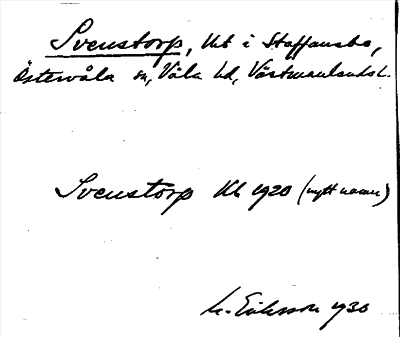 Svenstorp, Ut i Staffansbo,
Östervåla sn, Våla hd, Västmanlands l.
Svenstorp Ub 1920 (nytt namn)
M. Eriksson 1930